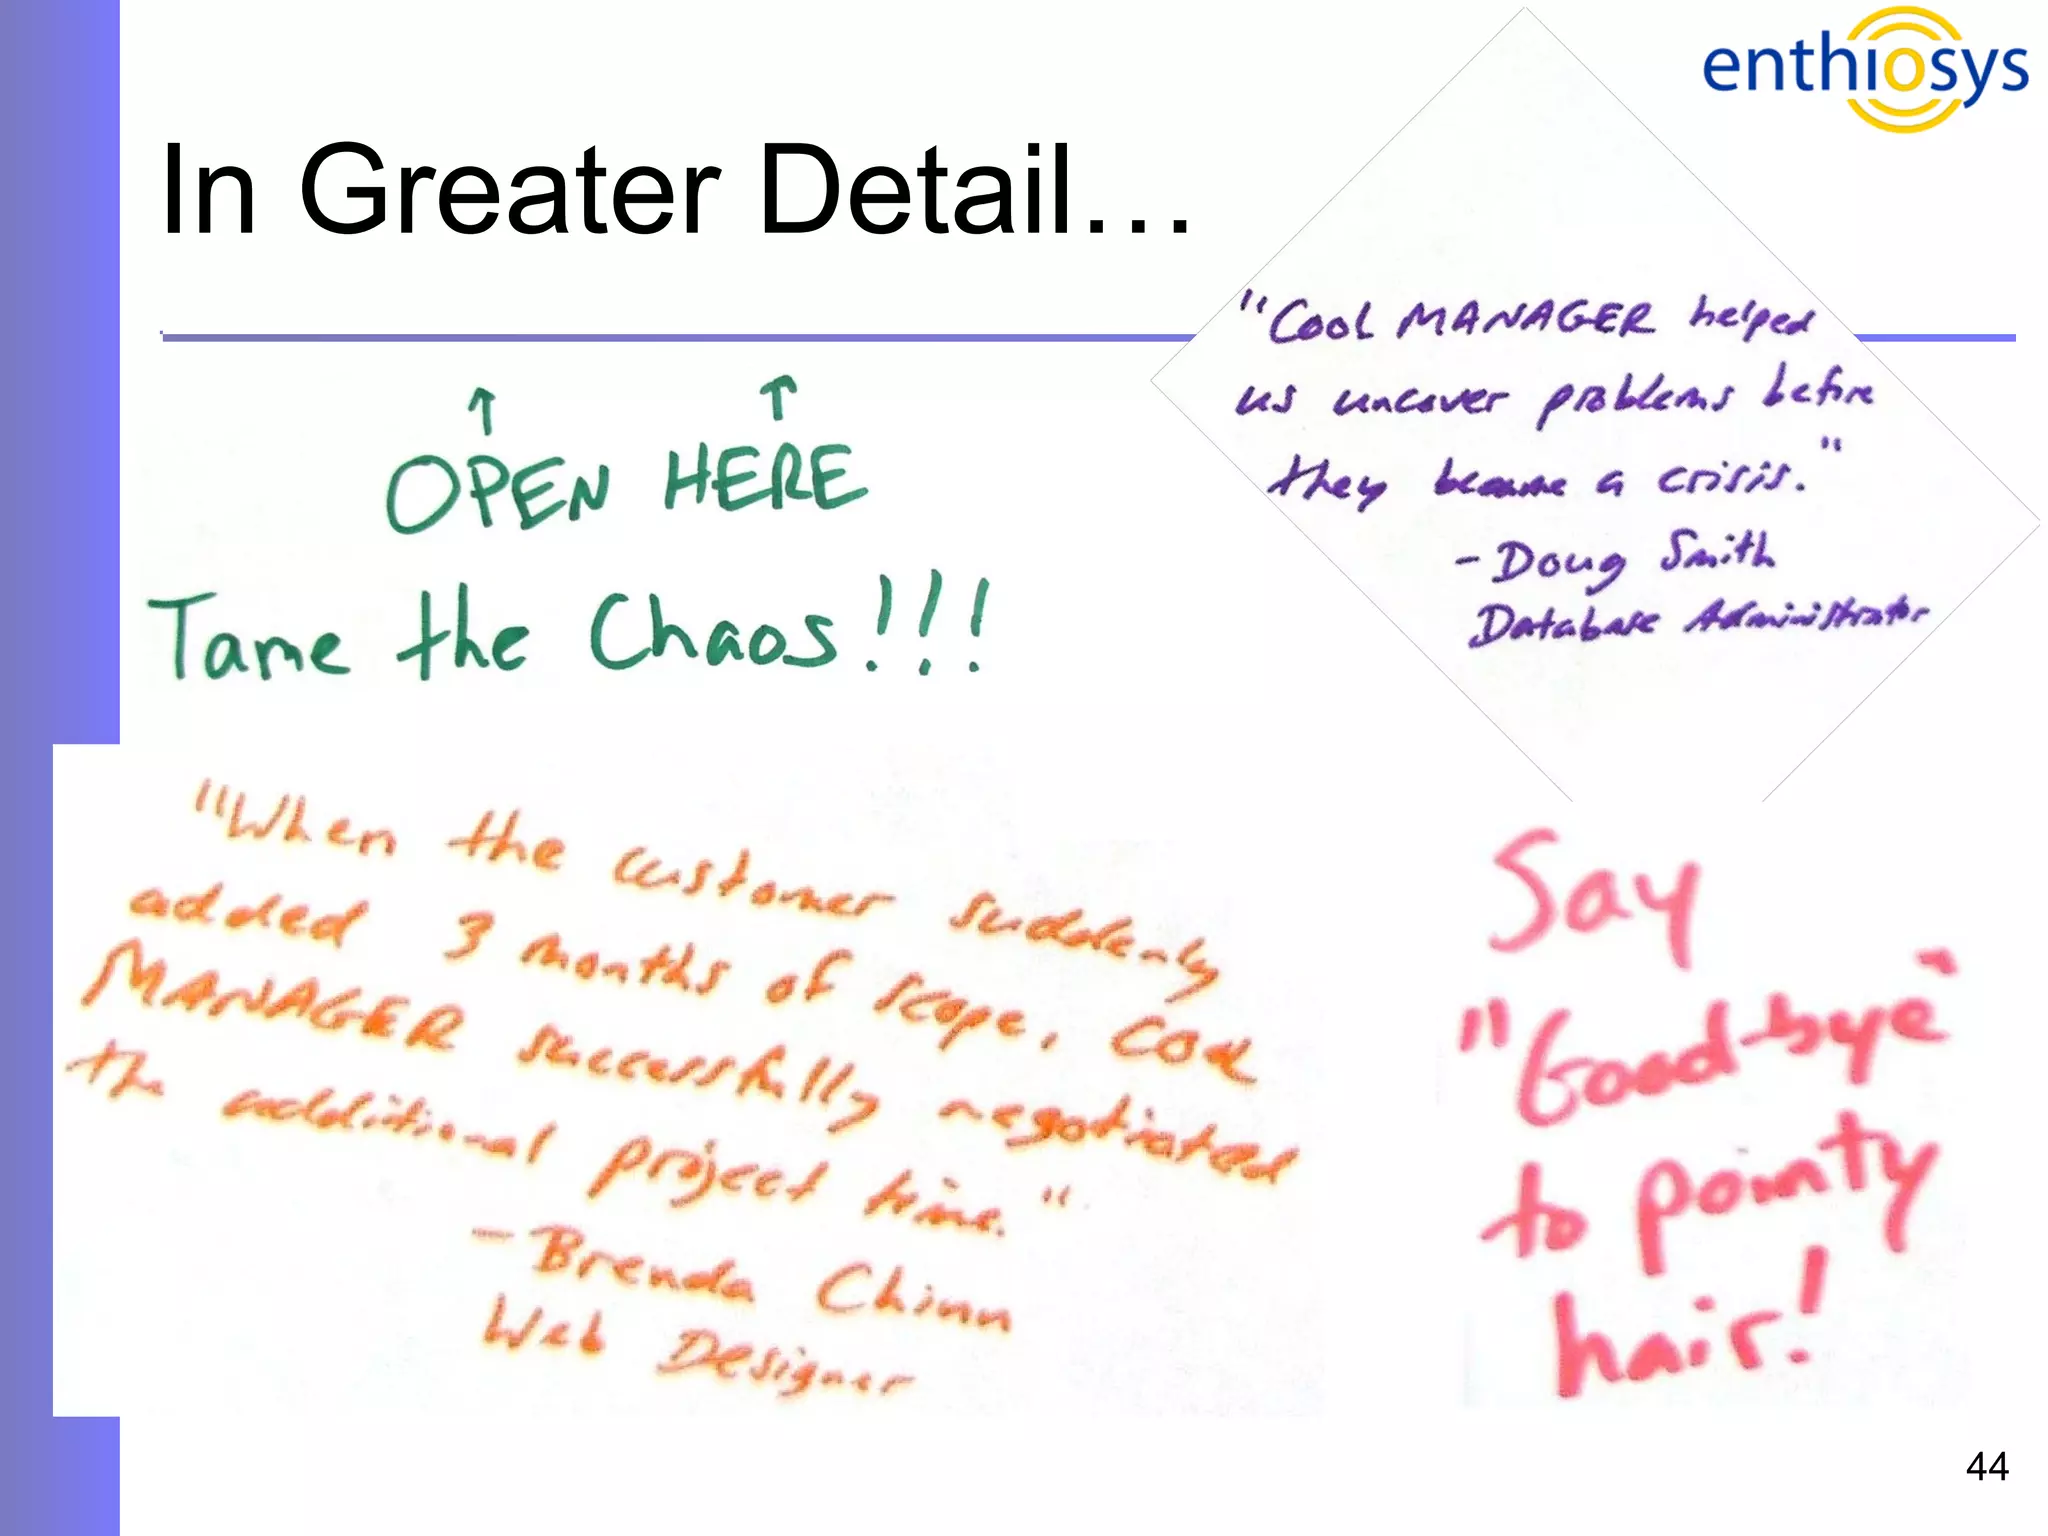 enthiosys
In Greater Detail…
"Cool MANAGER helped
us uncover problems before
they became a crisis."
- Doug Smith
Database Administrator
↑ ↑
OPEN HERE
Tame the Chaos!!!
"When the customer suddenly
added 3 months of scope, Cool
MANAGER successfully negotiated
the additional project time."
- Brenda Chinn
Web Designer
Say
"Good-bye"
to pointy
hair!
44